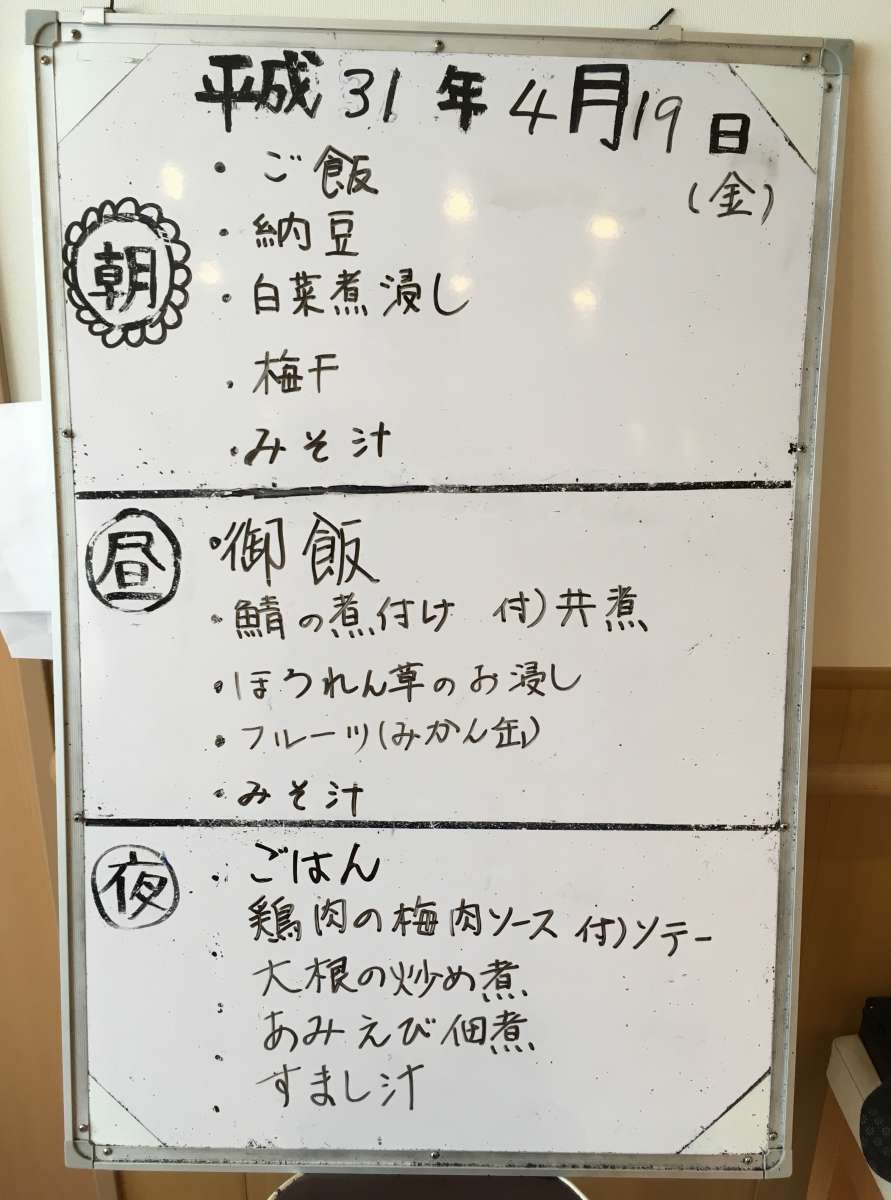 平成31年4月19日
(金)
朝
・ご飯
・納豆
・白菜煮浸し
・梅干
・みそ汁
昼
・御飯
・鯖の煮付け 付)共煮
・ほうれん草のお浸し
・フルーツ(みかん缶)
・みそ汁
夜
・ごはん
鶏肉の梅肉ソース 付)ソテー
・大根の炒め煮
・あみえび佃煮
・すまし汁